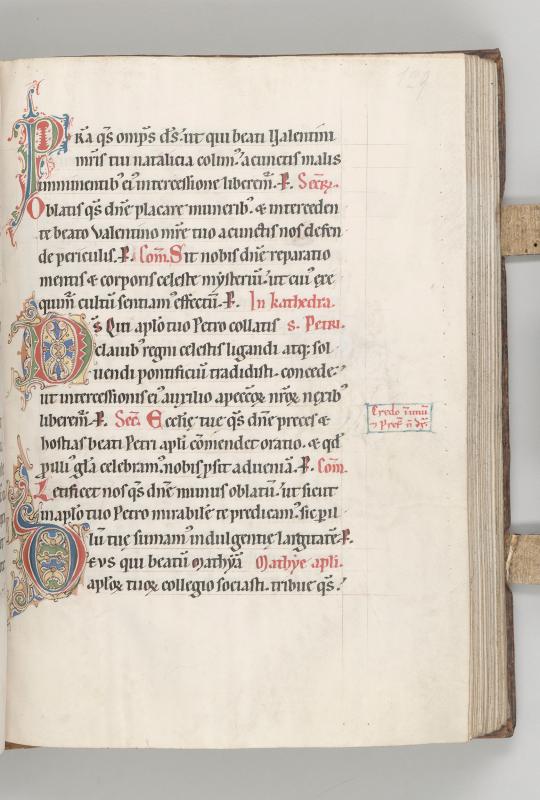 129
PRa qs omps ds. ut qui beati Valentini
mris tui natalicia colim' a cunctis malis
imminentib' ei' intercessione liberem'. P. Secr.
Oblatis qs dne placare munerib'. & interceden
te beato Valentino mre tuo a cunctis nos defen
de periculis. P. Com. Sit nobis dne reparatio
mentis & corporis celeste mysteriu. ut cui' exe
quim' cultu sentiam' effectu. P. In kathedra
Ds Qui aplo tuo Petro collatis s. Petri.
clauib' regni celestis ligandi atq; sol
uendi pontificiu tradidisti. concede'
ut intercessionis ei' auxilio a peccoꝝ nroꝝ nexib'
liberem'. P. Secr. Ecclię tuę qs dne preces &
hostias beati Petri apli comendet oratio. & qd
p illi' gla celebram'. nobis psit ad uenia. P. Com.
Letificet nos qs dne munus oblatu. ut sicut
in aplo tuo Petro mirabile te predicam'. sic p il
lu tuę sumam' indulgentię largitate. P.
Deus qui beatu Mathya Mathye apli.
aploꝝ tuoꝝ collegio sociasti. tribue qs.'
Credo i unu
& Pref. n dr.